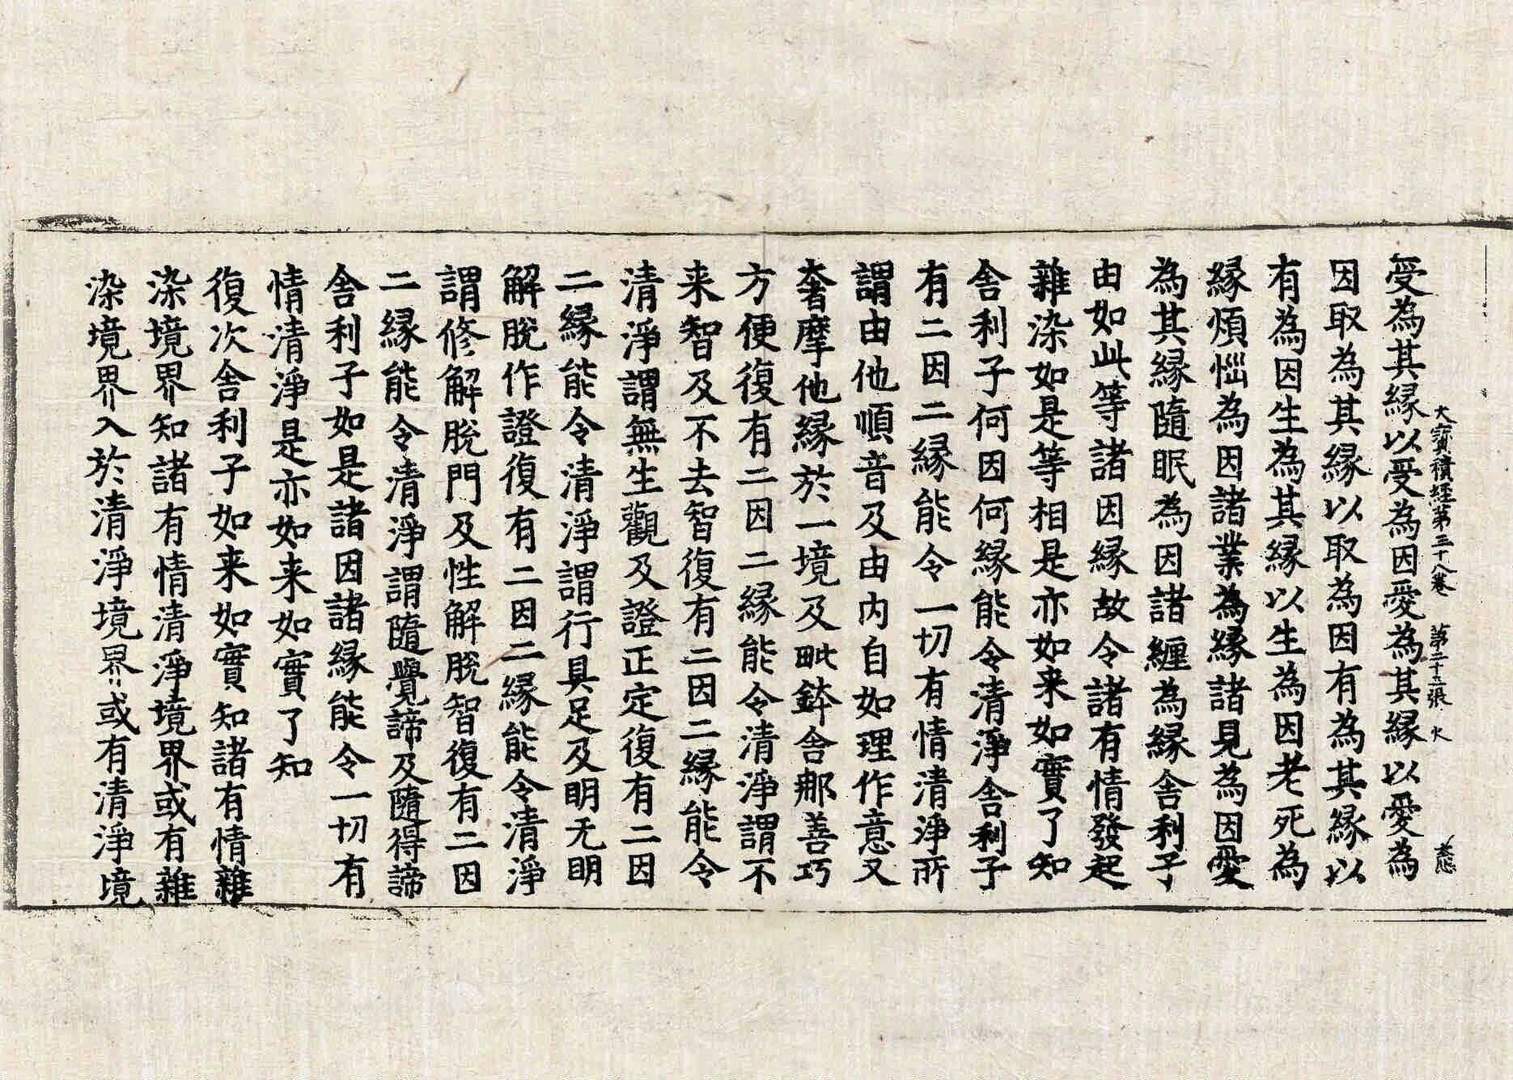 大寶積經第三十八卷　第二十二張　火
受為其縁以受為因愛為其縁以愛為
因取為其縁以取為因有為其縁以
有為因生為其縁以生為因老死為
縁煩惱為因諸業為縁諸見為因愛
為其縁隨眠為因諸纏為縁舎利子
由如此等諸因縁故令諸有情發起
雜染如是等相是亦如来如實了知
舎利子何因何縁能令清淨舎利子
有二因二縁能令一切有情清淨所
謂由他順音及由内自如理作意又
奢摩他縁於一境及毗鉢舎那善巧
方便復有二因二縁能令清淨謂不
来智及不去智復有二因二縁能令
清淨謂無生觀及證正定復有二因
二縁能令清淨謂行具足及明无明
解脫作證復有二因二縁能令清淨
謂修解脫門及性解脫智復有二因
二縁能令清淨謂隨覺諦及隨得諦
舎利子如是諸因諸縁能令一切有
情清淨是亦如来如實了知
復次舎利子如来如實知諸有情雜
染境界知諸有情清淨境界或有雜
染境界入於清淨境界或有清淨境